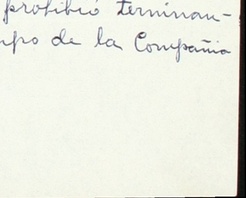 prohibió terminan-
mpo de la Compañia